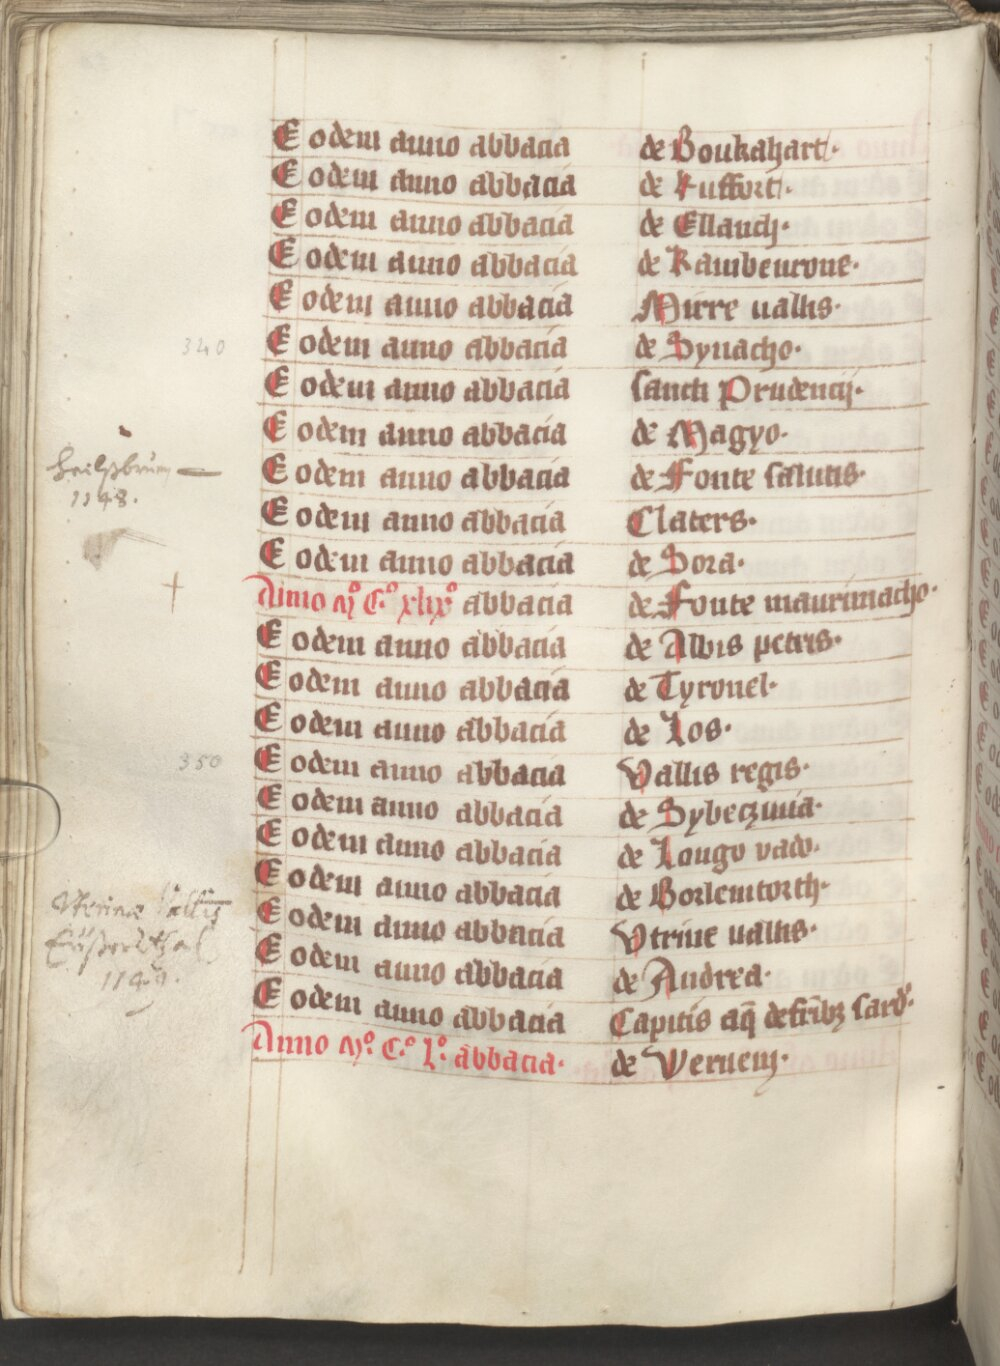 Eodem anno abbacia de Boukahart·
Eodem anno abbacia de Ruffort·
Eodem anno abbacia de Ellanch·
Eodem anno abbacia de Kambeurone·
Eodem anno abbacia Mirre uallis·
340 Eodem anno abbacia de Synacho·
Eodem anno abbacia sancti Prudencij·
Eodem anno abbacia de Magyo·
heilßbrun — Eodem anno abbacia de Fonte salutis·
1148.
Eodem anno abbacia Claters·
Eodem anno abbacia de Sora·
Anno mº Cº xlixº abbacia de Fonte maurimacho·
Eodem anno abbacia de Albis petris·
Eodem anno abbacia de Tyronel·
Eodem anno abbacia de Los·
350 Eodem anno abbacia Vallis regis·
Eodem anno abbacia de Sybeczinia·
Eodem anno abbacia de Longo vado·
Eodem anno abbacia de Borlemtorth·
Vallis
Eüßersthal
1149.
Eodem anno abbacia Vtrine uallis·
Eodem anno abbacia de Andrea·
Eodem anno abbacia Capitis aq̄ de fribꝫ sardº·
Anno mº Cº Lº abbacia· de Wernem·